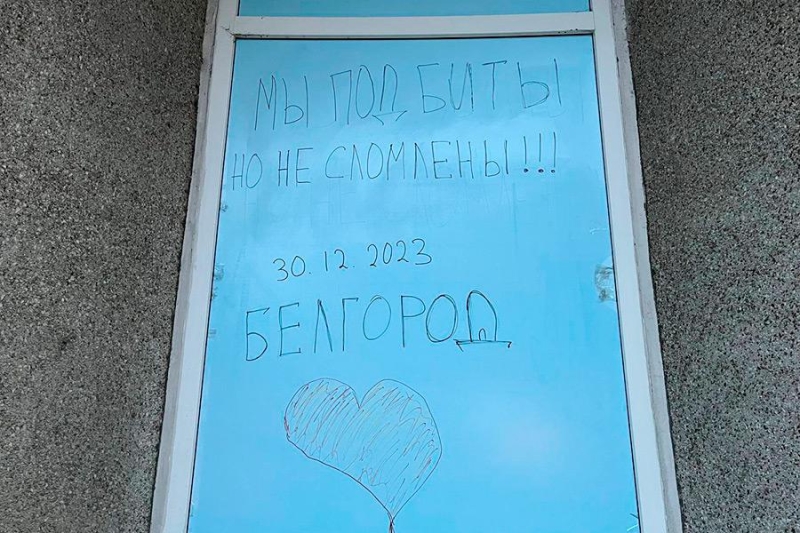 МЫ ПОДБИТЫ
НО НЕ СЛОМЛЕНЫ!!!
30.12.2023
БЕЛГОРОД